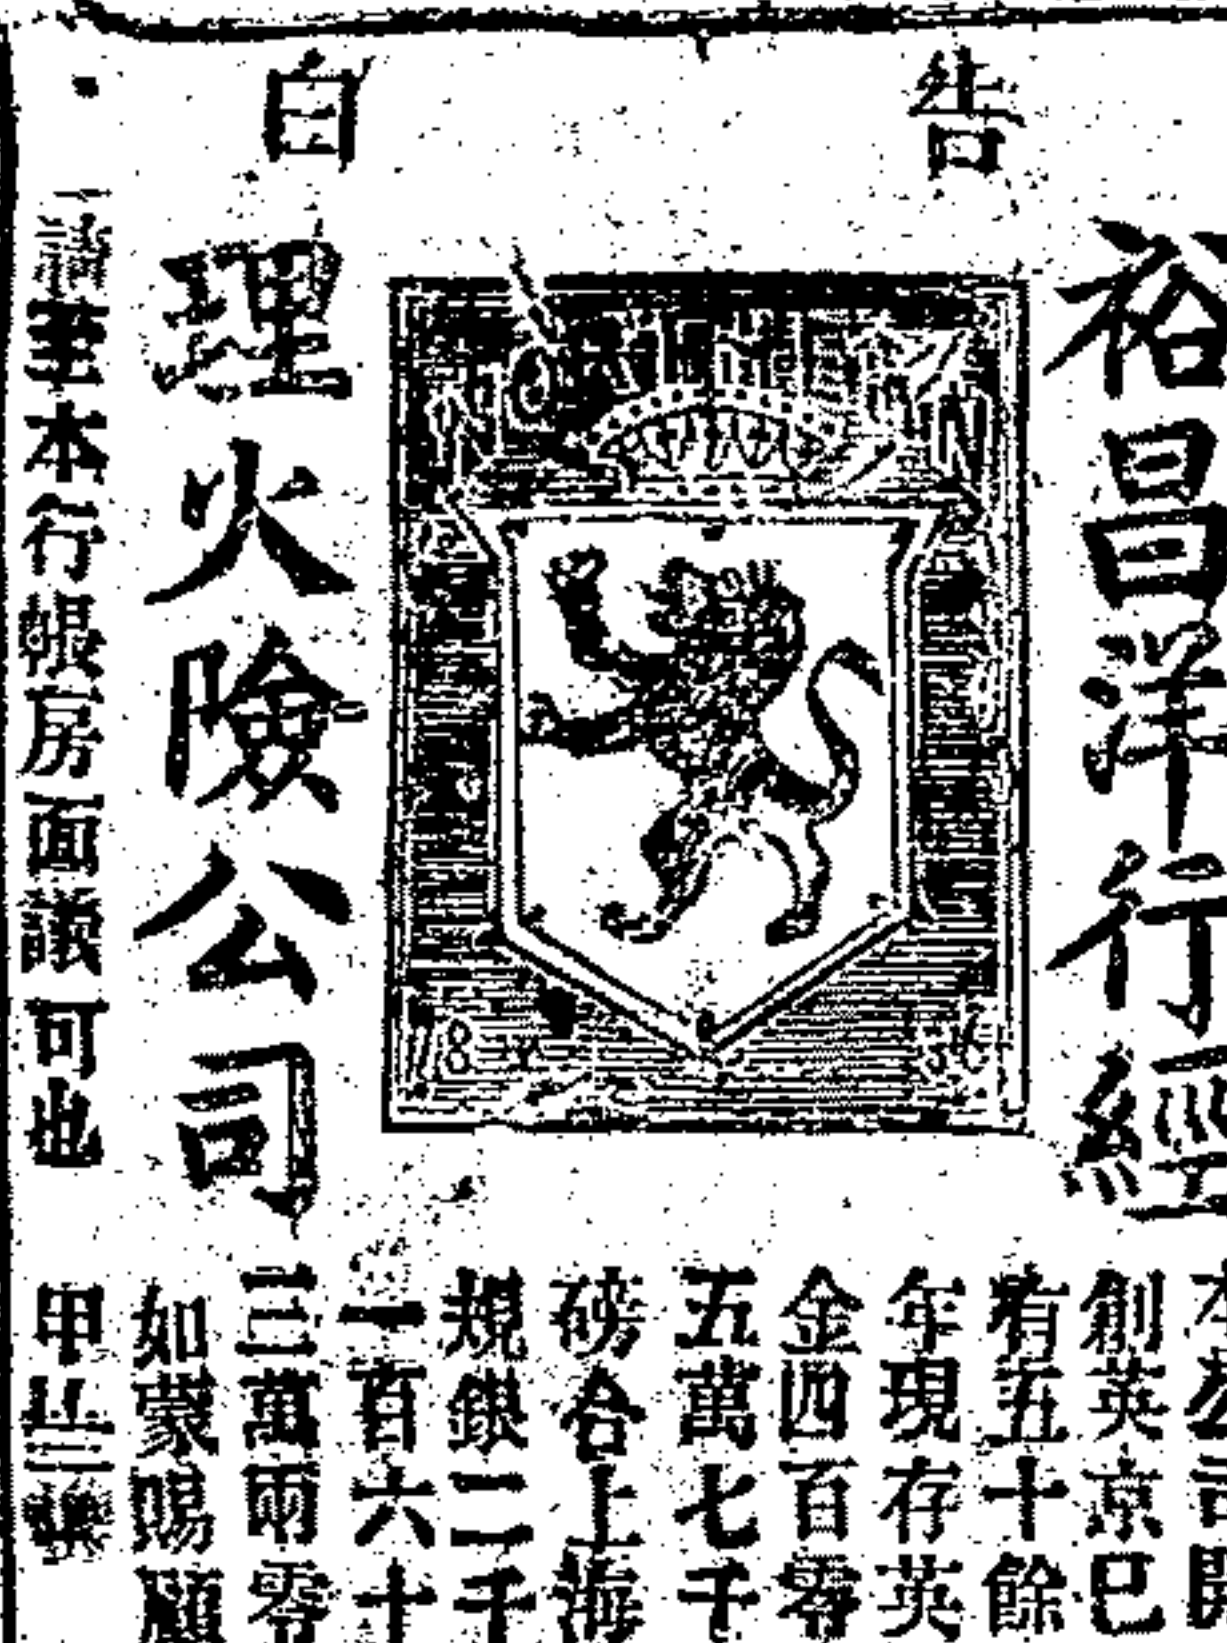 告白
裕昌洋行經
NORTHERN
18 36
理火險公司
本公司開
創英京已
有五十餘
年現存英
金四百零
五萬七千
磅合上海
規銀二千
一百六十
三萬兩零
如蒙賜顧
請至本行賬房面議可也
甲